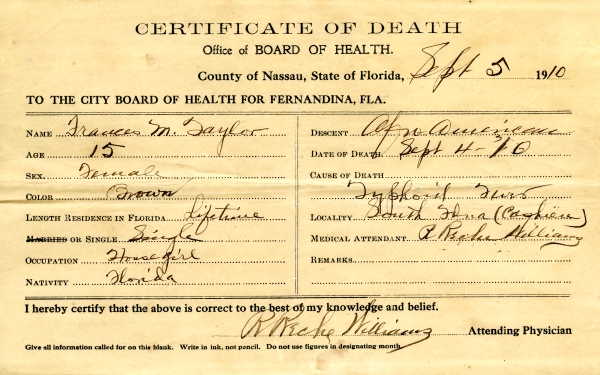 CERTIFICATE OF DEATH
Office of BOARD OF HEALTH.
County of Nassau, State of Florida, Sept 5 1910
TO THE CITY BOARD OF HEALTH FOR FERNANDINA, FLA.
NAME Frances M. Taylor
AGE 15
SEX. Female
COLOR Brown
LENGTH RESIDENCE IN FLORIDA Lifetime
MARRIED OR SINGLE Single
OCCUPATION House girl
NATIVITY Florida
DESCENT Afn American
DATE OF DEATH Sept 4-10
CAUSE OF DEATH
Typhoid Fever
LOCALITY South
MEDICAL ATTENDANT R Reche Williams
REMARKS
I hereby certify that the above is correct to the best of my knowledge and belief.
R Reche Williams Attending Physician
Give all information called for on this blank. Write in ink, not pencil. Do not use figures in designating month.